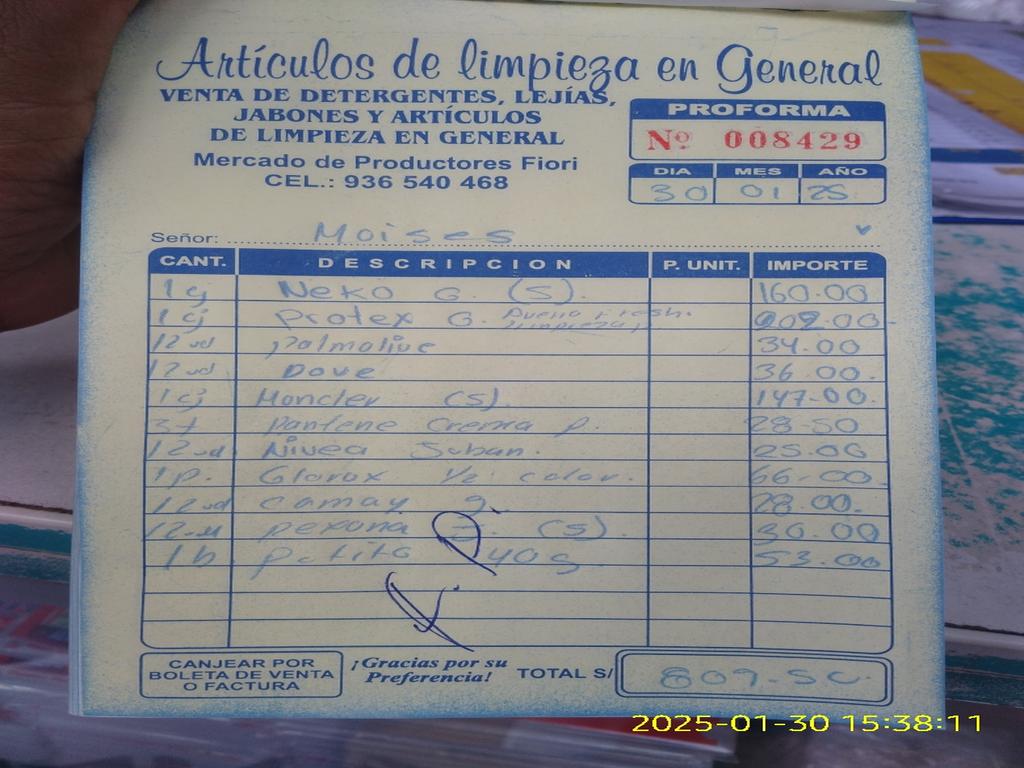 Artículos de limpieza en General
VENTA DE DETERGENTES, LEJÍAS,
JABONES Y ARTÍCULOS
DE LIMPIEZA EN GENERAL
Mercado de Productores Fiori
CEL.: 936 540 468
PROFORMA
Nº 008429
DIA MES AÑO
30 01 25
Señor: Moises
CANT. DESCRIPCION P. UNIT. IMPORTE
1 cj Neko G. (S). 160.00
1 cj Protex G. Fresh. limpieza, 202.00
12 ud palmolive 34.00
12 ud Dove 36.00.
1 cj Moncler (S). 147.00
Pantene Crema P. 28.50
12 ud Nivea 25.00
1 p. Clorox 1/2 color. 66.00
12 ud camay g. 28.00.
12 u (S) 30.00
1 b 40g 53.00
CANJEAR POR
BOLETA DE VENTA
O FACTURA
¡Gracias por su
Preferencia!
TOTAL S/ 809.50
2025-01-30 15:38:11